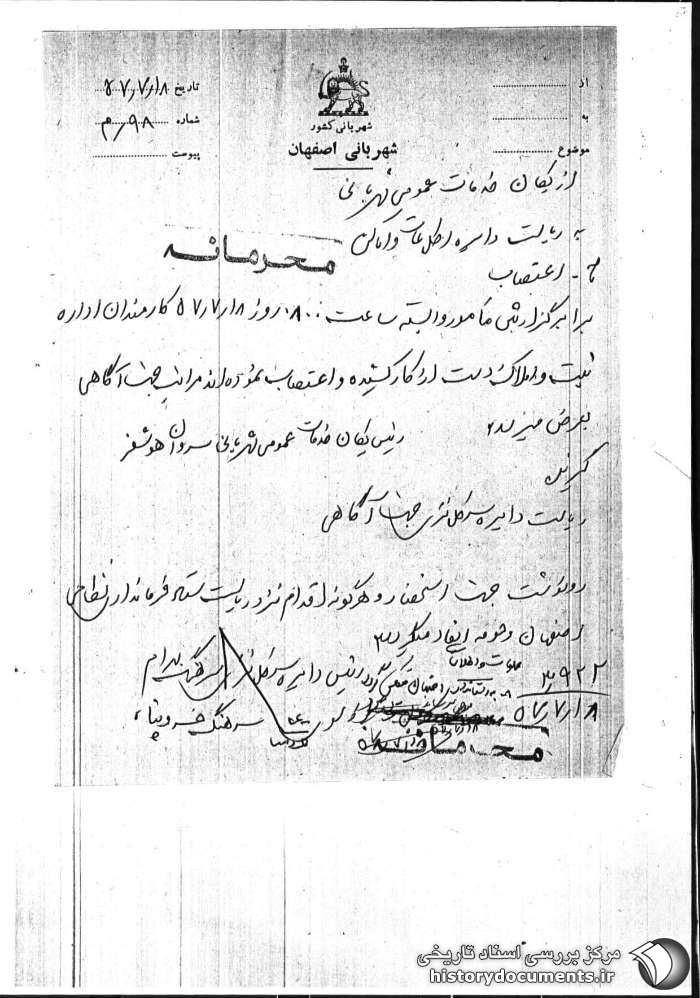 از
به
موضوع
شهربانی کشور
شهربانی اصفهان
تاریخ ۵۷٫۷٫۱۸
شماره ۹۸٫م
پیوست
از یگان خدمات عمومی شهربانی
به ریاست دایره اطلاعات و اماکن
محرمانه
ح - اعتصاب
برابر گزارش مامور وابسته ساعت ۰۸۰۰ روز ۵۷٫۷٫۱۸ کارمندان اداره
ثبت و املاک دست از کار کشیده و اعتصاب نموده‌اند مراتب جهت آگاهی
بعرض میرسد
رئیس یگان خدمات عمومی شهربانی سروان
گیرنده
ریاست دایره سرکلانتری جهت آگاهی
رونوشت جهت استحضار و هرگونه اقدام نزد ریاست ستاد فرمانداری نظامی
اصفهان و حومه ایفاد میگردد
رئیس دایره سرهنگ
سرهنگ
۳٫۹۲۲
۵۷٫۷٫۱۸
محرمانه
مرکز بررسی اسناد تاریخی
historydocuments.ir